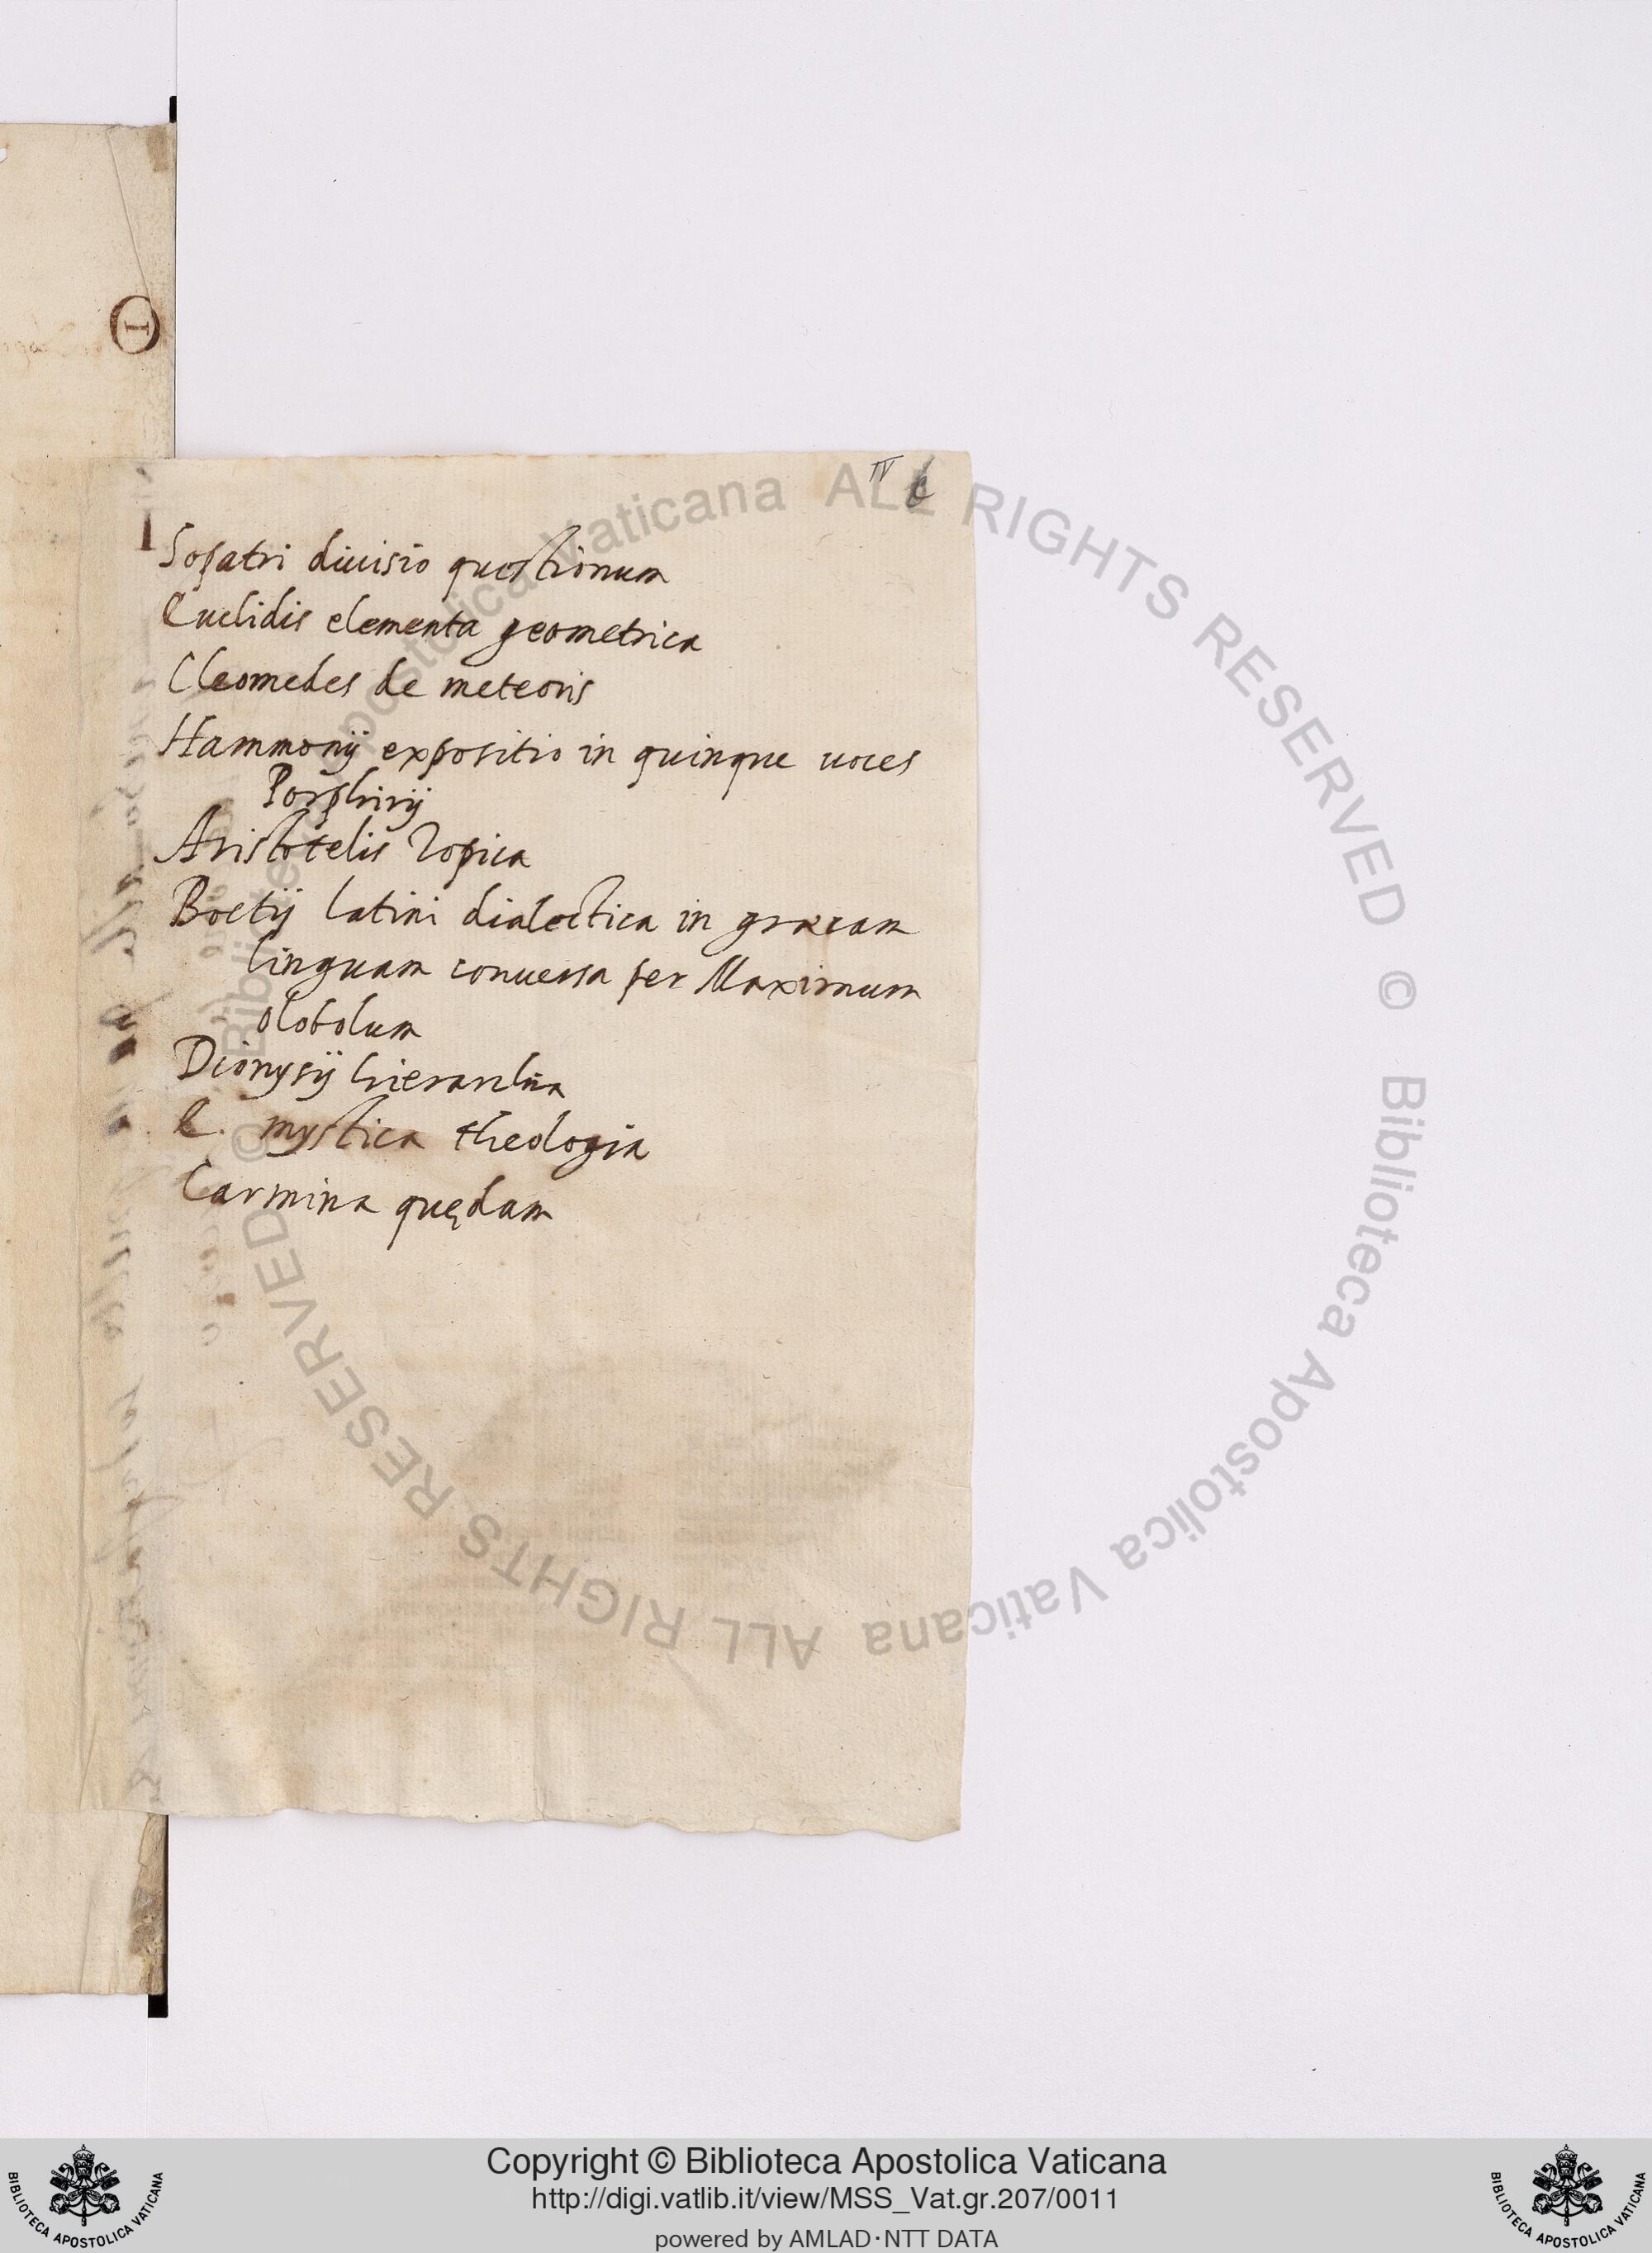 IV
Sopatri diuisio questionum
Euclidis elementa geometrica
Cleomedes de meteoris
Hammonij expositio in quinque uoces
Porphirij
Aristotelis Topica
Boetij latini dialectica in græcam
linguam conuersa per Maximum
olobolum
Dionysij hierarchia
E. mystica theologia
Carmina quędam
© Biblioteca Apostolica Vaticana ALL RIGHTS RESERVED © Biblioteca Apostolica Vaticana ALL RIGHTS RESERVED
Copyright © Biblioteca Apostolica Vaticana
http://digi.vatlib.it/view/MSS_Vat.gr.207/0011
powered by AMLAD·NTT DATA
BIBLIOTECA APOSTOLICA VATICANA
BIBLIOTECA APOSTOLICA VATICANA